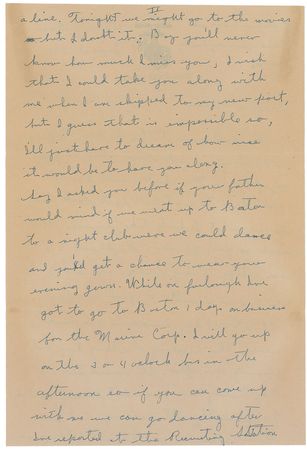 II
a line. Tonight we might go to the movies
but I doubt it. Boy you'll never
know how much I miss you, I wish
that I could take you along with
me when I am shipped to my new post,
but I guess that is impossible so,
I'll just have to dream of how nice
it would be to have you along.
Say I asked you before if your father
would mind if we went up to Boston
to a night club were we could dance
and you'd get a chance to wear your
evening gown. While on furlough I've
got to go to Boston 1 day on business
for the Marine Corp. I will go up
on the 3 or 4 oclock bus in the
afternoon so if you can come up
with me we can go dancing after
I've reported to the Recruiting Station